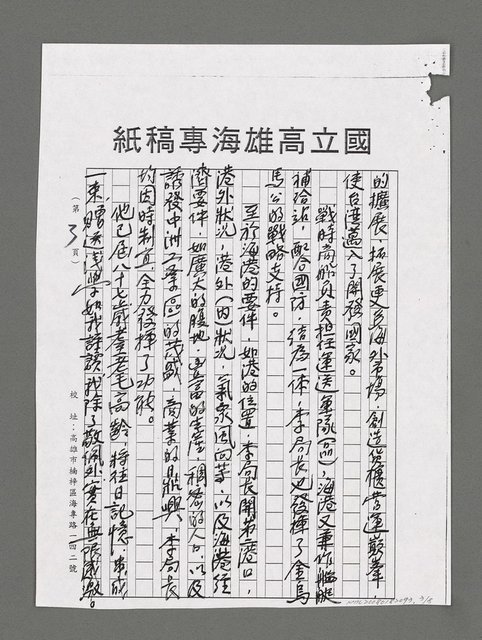 國立高雄海專稿紙
的擴展,拓展更多海外市場,創造貨櫃營運巔峯,
使台湾萬入了開發國家。
戰時商船負責担任運送軍隊(品),海港又重作艦艇
補給站,配合國防,結為一体,李局長也發揮了金馬
馬公的戰略支持。
至於海港的要件,如港的位置,李局長開第二港口,
港外狀況,港外(內)狀況,氣象風向等,以及海港經
濟要件,如廣大的腹地,豊富的生產,稠密的人口,以及
誘發中洲工業區的茂盛,商業的鼎興,李局長
均因時制宜全力發揮了功能。
他已居八十七歲耆老毛高齡,將往日記憶,串成
一束,贈送後學如我詳讀,我除了敬佩外,實在無限感激。
(第 3 頁)
校 址:高雄市楠梓區海專路一四二號
3/8